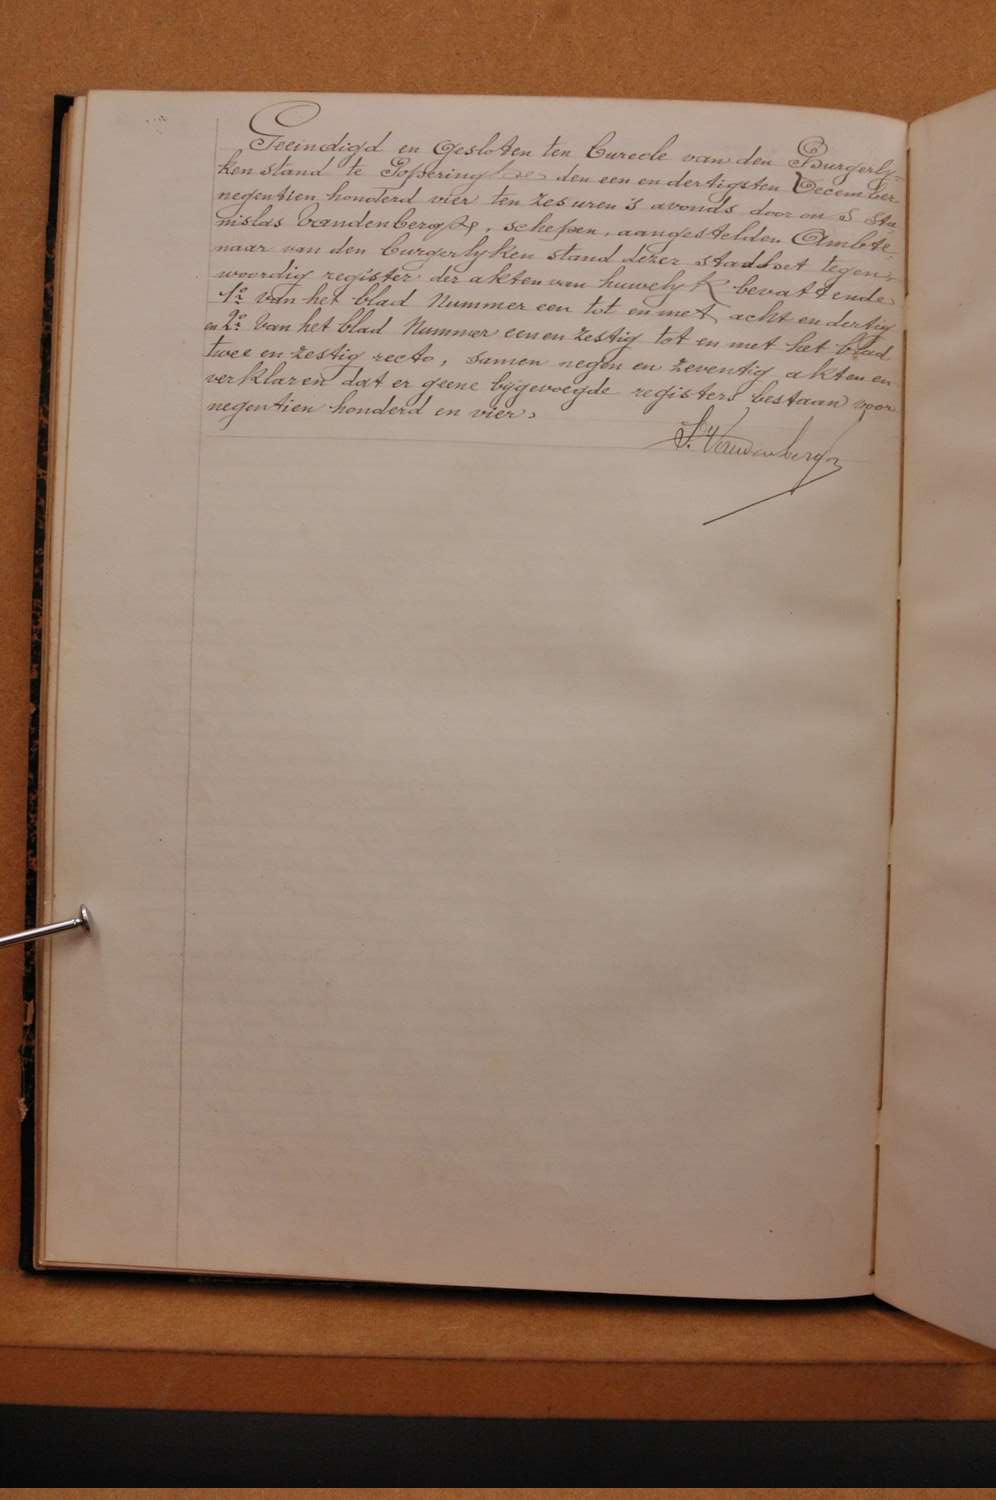 Geeindigd en Gesloten ten bureele van den Burgerly-
ken stand te Poperinghe den een en dertigsten December
negentien honderd vier ten zes uren 's avonds door ons Sta-
nislas Vandenberghe, schepen, aangestelden Ambte-
naar van den burgerlyken stand dezer stad het tegen-
woordig register der akten van huwelyk bevattende
1º van het blad Nummer een tot en met acht en dertig
en 2º van het blad Nummer een en zestig tot en met het blad
twee en zestig recto, samen negen en zeventig akten en
verklaren dat er geene bijgevoegde registers bestaan voor
negentien honderd en vier.
S. Vandenberghe